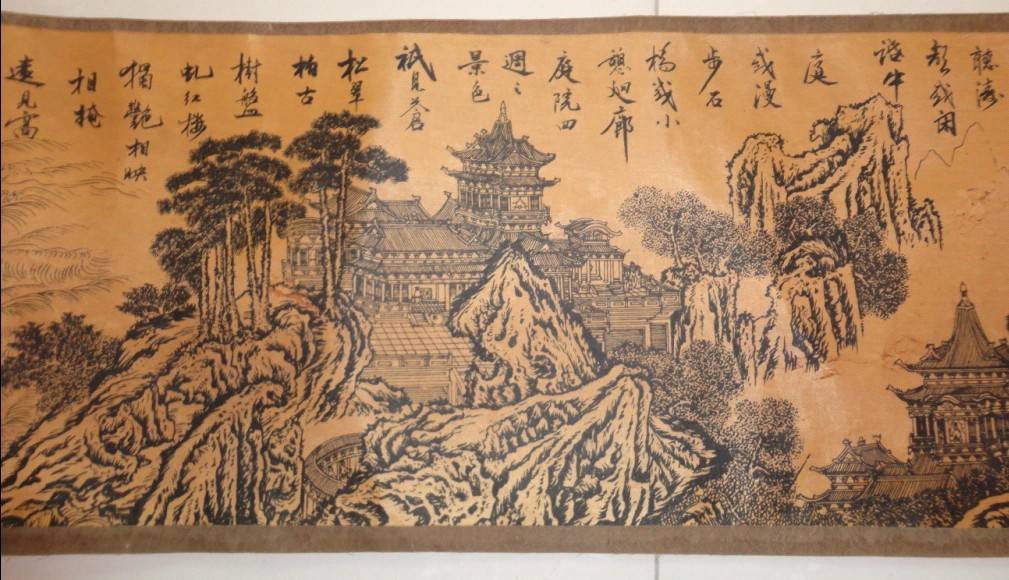 聽濤
聲或閑
談中
庭
或漫
步石
橋或小
憩迴廊
庭院四
週之
景色
祇見蒼
松翠
柏古
樹盤
虬紅樓
獨艷相映
相掩
遠見高